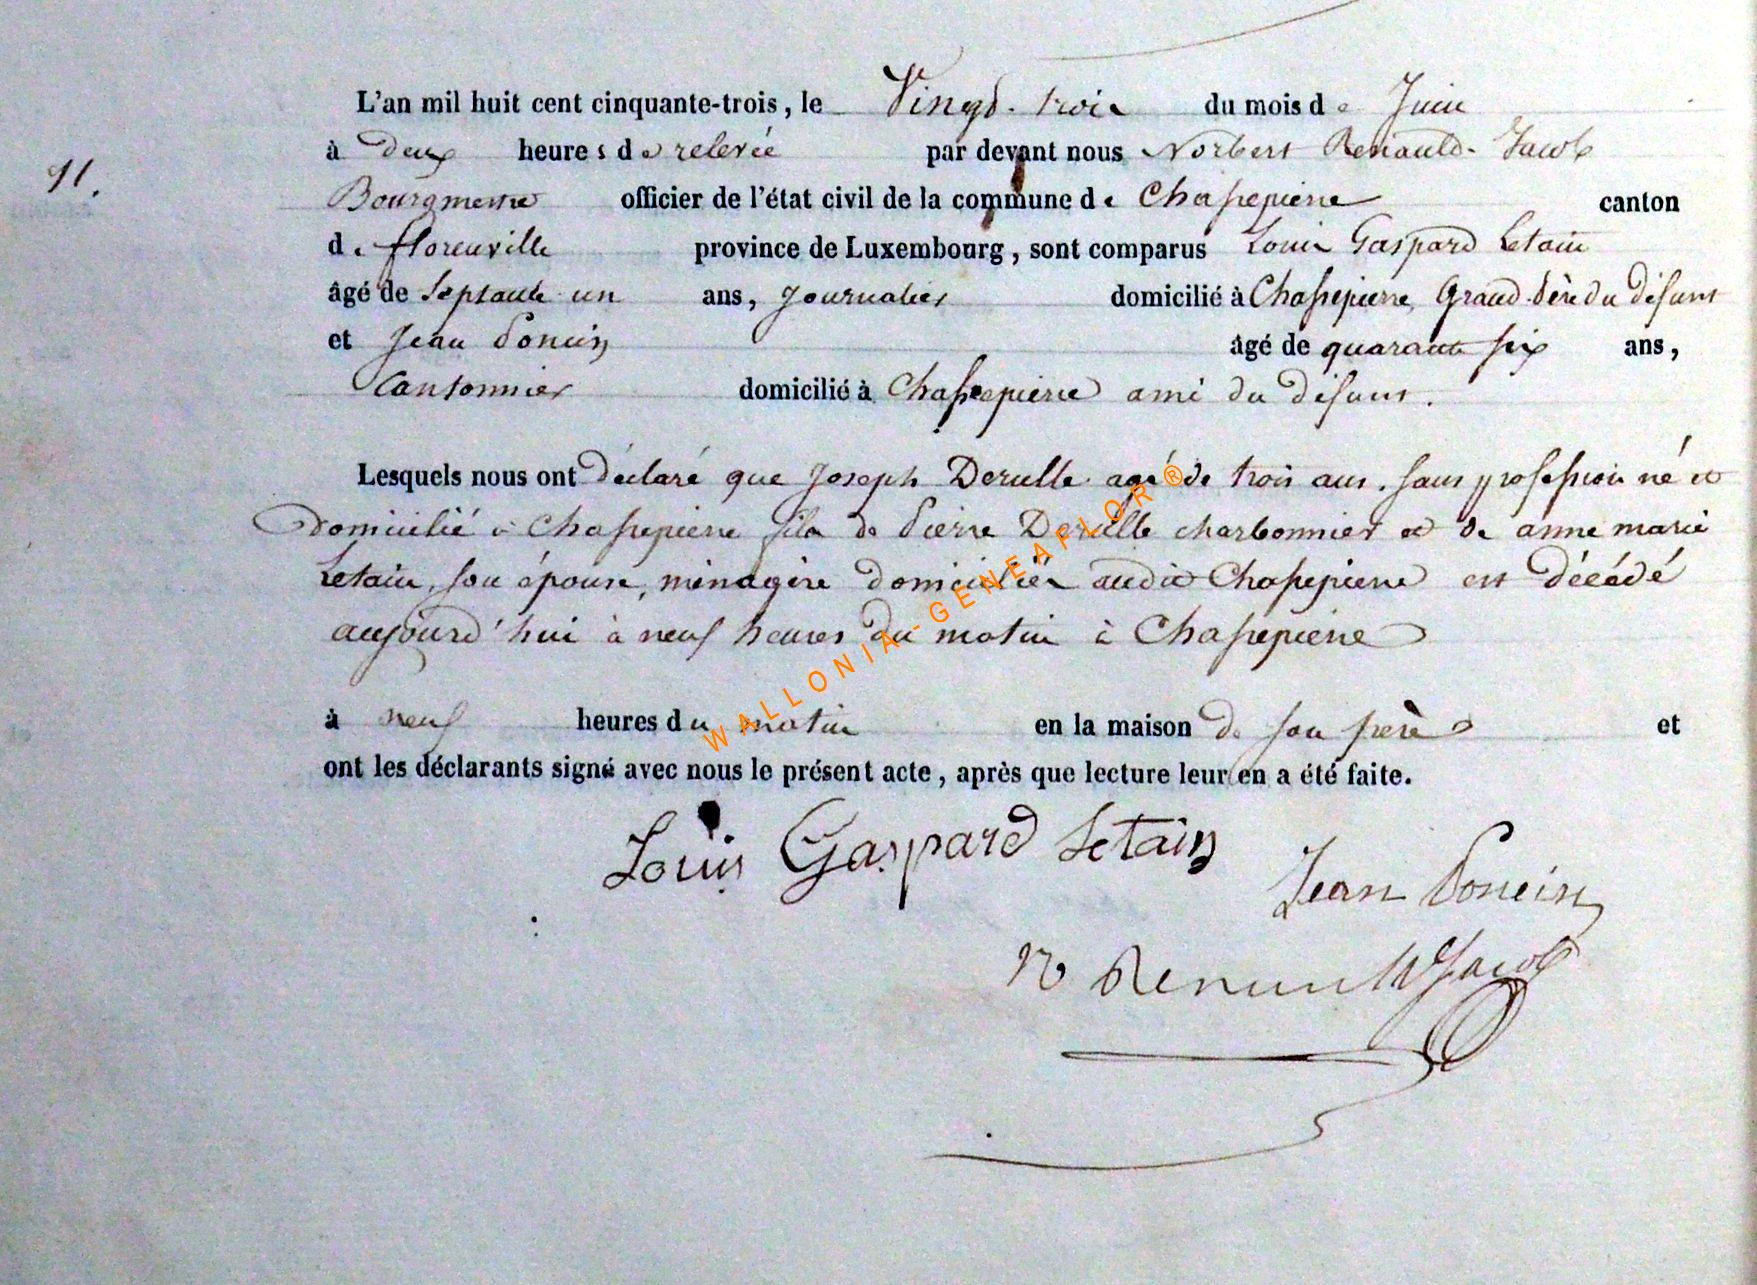 L'an mil huit cent cinquante-trois, le Vingt-trois du mois de Juin
à deux heures de relevée par devant nous Norbert Renauld-Jacob
11.
Bourgmestre officier de l'état civil de la commune de Chassepierre canton
de florenville province de Luxembourg, sont comparus Louis Gaspard Letain
âgé de Septante un ans, Journalier domicilié à Chassepierre, Grand-Père du défunt
et Jean Poncin âgé de quarante six ans,
Cantonnier domicilié à Chassepierre ami du défunt.
Lesquels nous ont déclaré que Joseph Derulle agé de trois ans, sans profession né et
domicilié à Chassepierre fils de Pierre Derulle charbonnier et de anne marie
Letain, son épouse, ménagère domiciliés audit Chassepierre est décédé
aujourd'hui à neuf heures du matin à Chassepierre
à neuf heures du matin en la maison de son père et
ont les déclarants signé avec nous le présent acte, après que lecture leur en a été faite.
Louis Gaspard Letain
Jean Poncin
N Renauld Jacob
WALLONIA-GENEAFLOR®